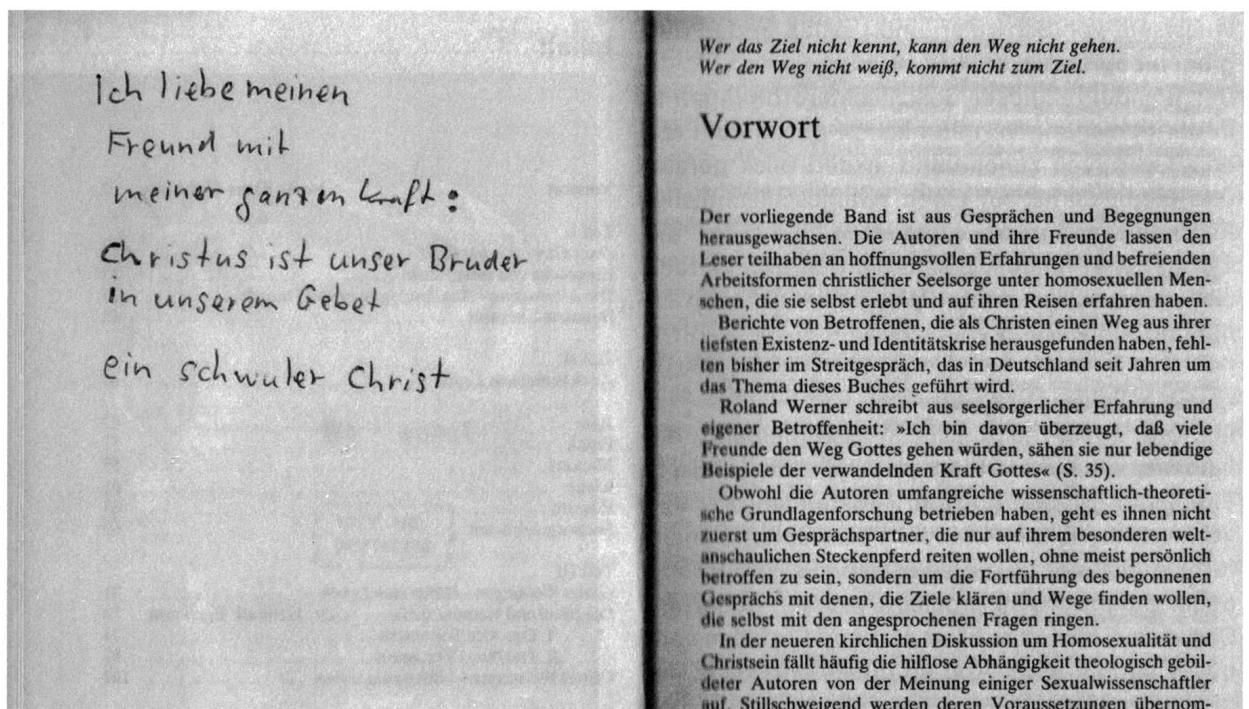 Ich liebe meinen
Freund mit
meiner ganzen Kraft:
Christus ist unser Bruder
in unserem Gebet
ein schwuler Christ
Wer das Ziel nicht kennt, kann den Weg nicht gehen.
Wer den Weg nicht weiß, kommt nicht zum Ziel.
Vorwort
Der vorliegende Band ist aus Gesprächen und Begegnungen
herausgewachsen. Die Autoren und ihre Freunde lassen den
Leser teilhaben an hoffnungsvollen Erfahrungen und befreienden
Arbeitsformen christlicher Seelsorge unter homosexuellen Men-
schen, die sie selbst erlebt und auf ihren Reisen erfahren haben.
Berichte von Betroffenen, die als Christen einen Weg aus ihrer
tiefsten Existenz- und Identitätskrise herausgefunden haben, fehl-
ten bisher im Streitgespräch, das in Deutschland seit Jahren um
das Thema dieses Buches geführt wird.
Roland Werner schreibt aus seelsorgerlicher Erfahrung und
eigener Betroffenheit: »Ich bin davon überzeugt, daß viele
Freunde den Weg Gottes gehen würden, sähen sie nur lebendige
Beispiele der verwandelnden Kraft Gottes« (S. 35).
Obwohl die Autoren umfangreiche wissenschaftlich-theoreti-
sche Grundlagenforschung betrieben haben, geht es ihnen nicht
zuerst um Gesprächspartner, die nur auf ihrem besonderen welt-
anschaulichen Steckenpferd reiten wollen, ohne meist persönlich
betroffen zu sein, sondern um die Fortführung des begonnenen
Gesprächs mit denen, die Ziele klären und Wege finden wollen,
die selbst mit den angesprochenen Fragen ringen.
In der neueren kirchlichen Diskussion um Homosexualität und
Christsein fällt häufig die hilflose Abhängigkeit theologisch gebil-
deter Autoren von der Meinung einiger Sexualwissenschaftler
auf. Stillschweigend werden deren Voraussetzungen übernom-